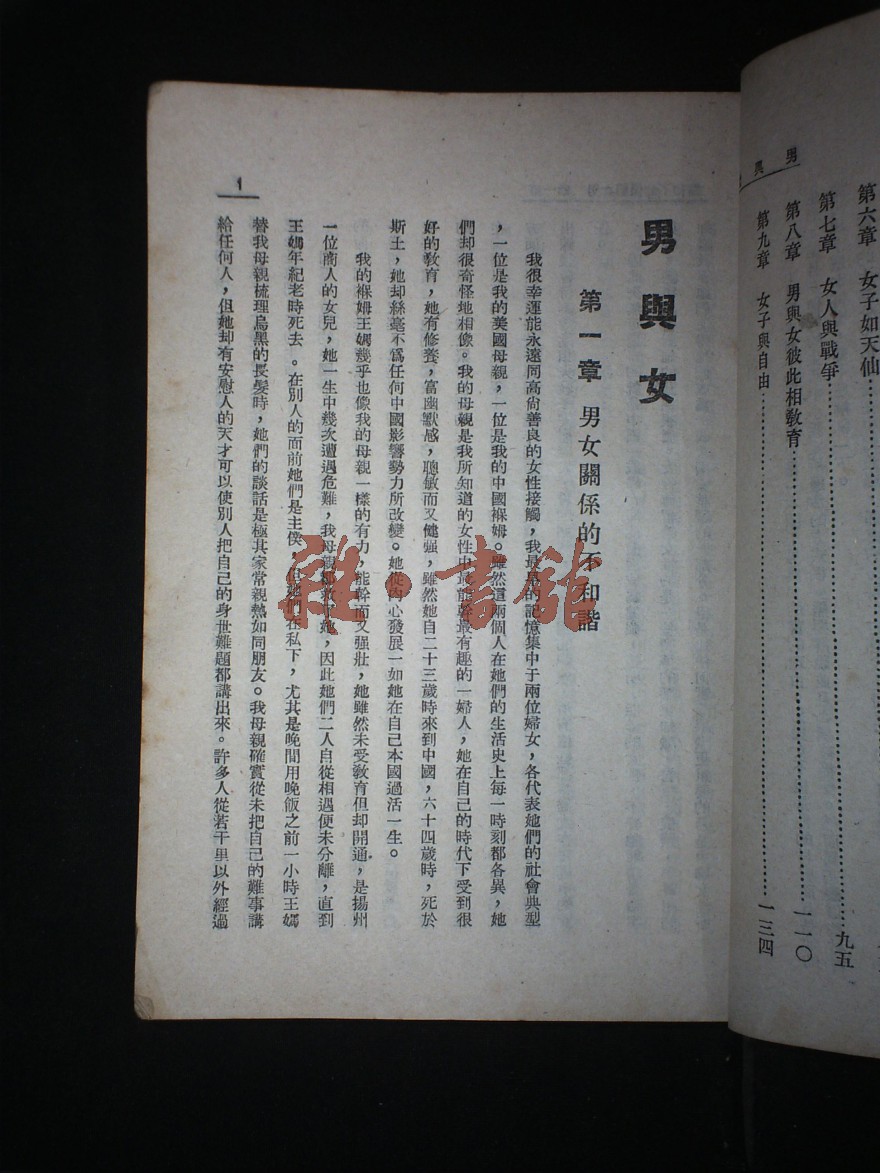 男與
第六章　女子如天仙
第七章　女人與戰爭……九五
第八章　男與女彼此相教育……一一〇
第九章　女子與自由……一三四
男與女
第一章　男女關係的不和諧
我很幸運能永遠同高尙善良的女性接觸，我最早的記憶集中于兩位婦女，各代表她們的社會典型
，一位是我的美國母親，一位是我的中國褓姆。雖然這兩個人在她們的生活史上每一時刻都各異，她
們却很奇怪地相像。我的母親是我所知道的女性中最能幹最有趣的一婦人，她在自己的時代下受到很
好的敎育，她有修養，富幽默感，聰敏而又健强，雖然她自二十三歲時來到中國，六十四歲時，死於
斯土，她却絲毫不爲任何中國影響勢力所改變。她從內心發展一如她在自己本國過活一生。
我的褓姆王媽幾乎也像我的母親一樣的有力，能幹而又强壯，她雖然未受敎育但却開通，是揚州
一位商人的女兒，她一生中幾次遭遇危難，我母親都救了她，因此她們二人自從相遇便未分離，直到
王媽年紀老時死去。在別人的面前她們是主僕，但她們在私下，尤其是晚間用晚飯之前一小時王媽
替我母親梳理烏黑的長髮時，她們的談話是極其家常親熱如同朋友。我母親確實從未把自己的難事講
給任何人，但她却有安慰人的天才可以使別人把自己的身世難題都講出來。許多人從若干里以外經過
1
雜·書館